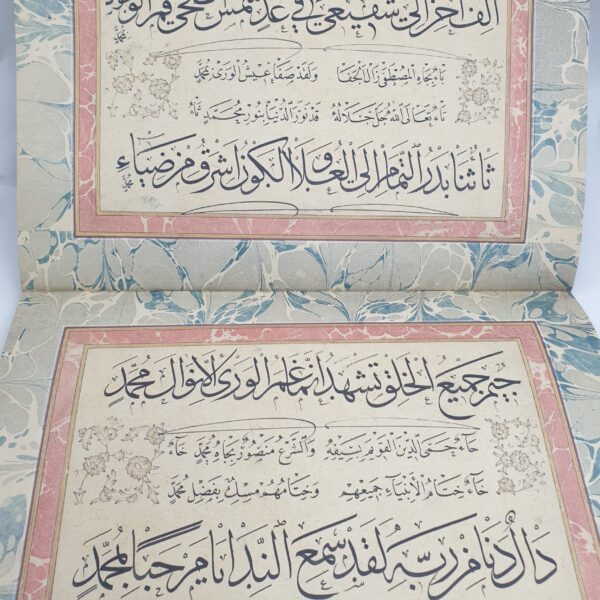 باء بجاه المصطفى زال الجفا ولقد صفا عيش الورى بمحمد
تاء تعالى الله جل جلاله قد نور الدنيا بنور محمد ثاء
ثاء ثنا بدر التمام إلى العلا والكون أشرق من ضياء محمد
جيم جميع الخلق تشهد أنه غمر الورى الأنوال محمد
حاء حمى الدين القويم بسيفه والشرع منصور بجاه محمد خاء
خاء ختام الأنبياء جميعهم وختامهم مسك بفضل محمد
دال دنا من ربه لقد سمع الندا يا مرحبا بمحمد